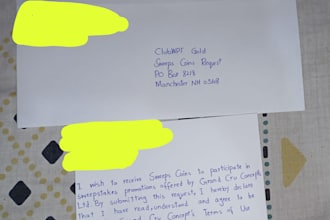 ClubWPT Gold
Sweeps Coins Request
PO Box
Manchester NH
I wish to receive Sweeps Coins to participate in
sweepstakes promotions offered by Grand Cru Concept
Ltd. By submitting this request, I hereby declare
that I have read, understand and agree to be
Cru Concept's Terms of Use